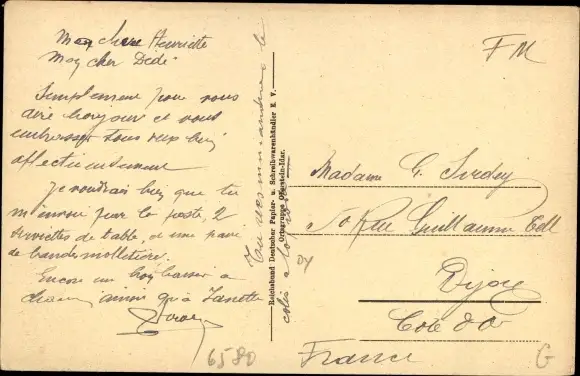 Ma chère Henriette
Mon cher Dédé
Simplement pour vous
dire bonjour et vous
embrasser tous deux bien
affectueusement
Je voudrais bien que tu
m'envoi par la poste, 2
serviettes de table, et une paire
de bandes molletière.
Encore un bon baiser a
chacun ainsi qu'à Zanette
Tu recommanderas le
colis
Reichsbund Deutscher Papier- u. Schreibwarenhändler E. V.
Ortsgruppe Oberstein-Idar.
FM
Madame G.
Rue Guillaume Tell
Dijon
Cote d'Or
France
6580
G